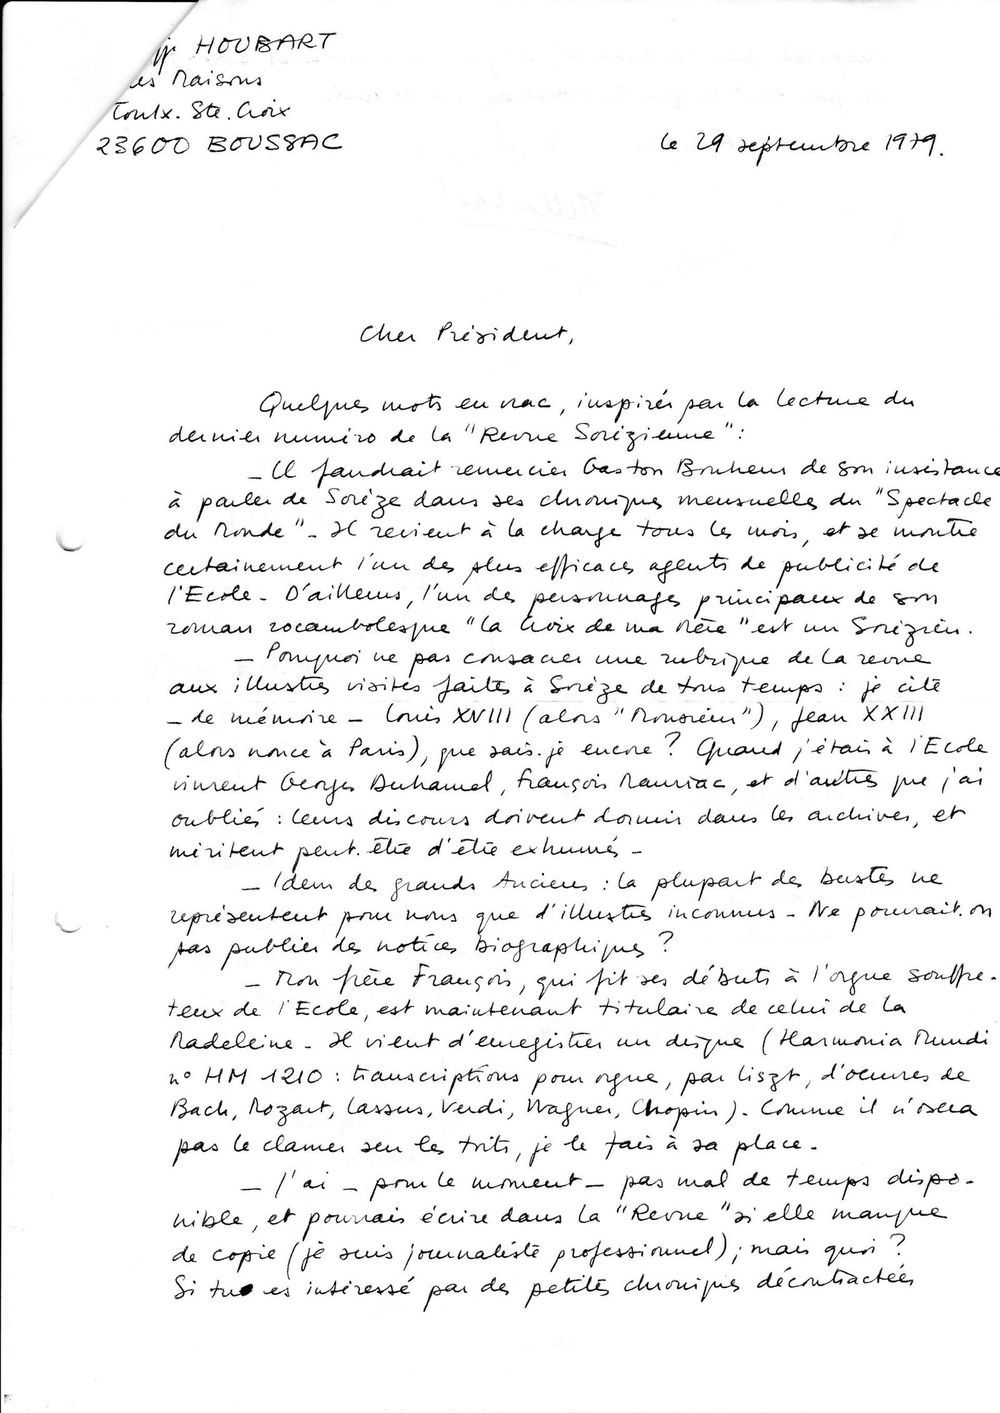 HOUBART
les Maisons
Toulx. Ste. Croix
23600 BOUSSAC
le 29 septembre 1979.
Cher Président,
Quelques mots en vrac, inspirés par la lecture du
dernier numéro de la "Revue Sorézienne":
_ Il faudrait remercier Gaston Bonheur de son insistance
à parler de Sorèze dans ses chroniques mensuelles du "Spectacle
du Monde" _ Il revient à la charge tous les mois, et se montre
certainement l'un des plus efficaces agents de publicité de
l'Ecole _ D'ailleurs, l'un des personnages principaux de son
roman rocambolesque "La Croix de ma Mère" est un Sorézien.
_ Pourquoi ne pas consacrer une rubrique de la revue
aux illustres visites faites à Sorèze de tous temps : je cite
_ de mémoire _ Louis XVIII (alors "Monsieur"), Jean XXIII
(alors nonce à Paris), que sais-je encore ? Quand j'étais à l'Ecole
vinrent Georges Duhamel, François Mauriac, et d'autres que j'ai
oubliés : leurs discours doivent dormir dans les archives, et
méritent peut-être d'être exhumés _
_ Idem des grands Anciens : la plupart des bustes ne
représentent pour nous que d'illustres inconnus _ Ne pourrait-on
pas publier des notices biographiques ?
_ Mon frère François, qui fit ses débuts à l'orgue souffre-
teux de l'Ecole, est maintenant titulaire de celui de la
Madeleine _ Il vient d'enregistrer un disque (Harmonia Mundi
n° HM 1210 : transcriptions pour orgue, par Liszt, d'oeuvres de
Bach, Mozart, Lassus, Verdi, Wagner, Chopin). Comme il n'osera
pas le clamer sur les toits, je le fais à sa place _
_ J'ai _ pour le moment _ pas mal de temps dispo-
nible, et pourrais écrire dans la "Revue" si elle manque
de copie (je suis journaliste professionnel) ; mais quoi ?
Si tu es intéressé par des petites chroniques décontractées